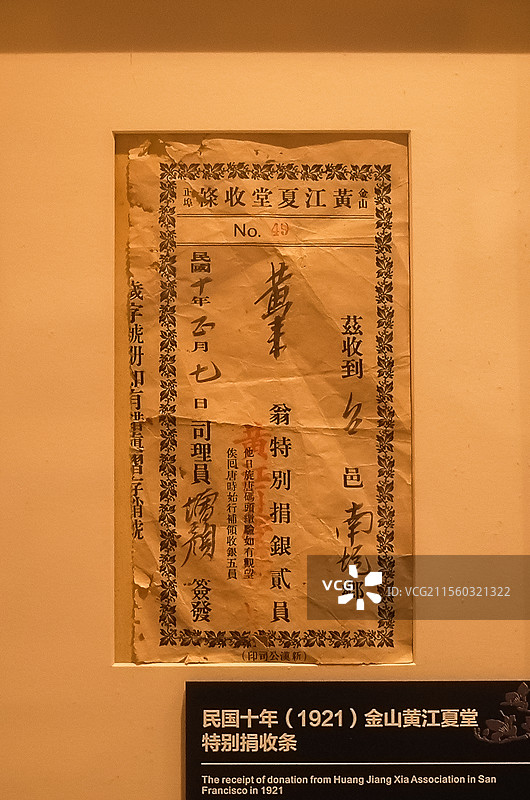 金山正埠黃江夏堂收條
No. 49
茲收到台邑南坑鄉
黃
翁特別捐銀貳員
他日旋唐碼頭繳驗如有觀望
俟回唐時始行補領收銀五員
民國十年正月七日司理員
簽發
(新漢公司印)
VCG
VCG211560321322
民国十年（1921）金山黄江夏堂
特别捐收条
The receipt of donation from Huang Jiang Xia Association in San
Francisco in 1921